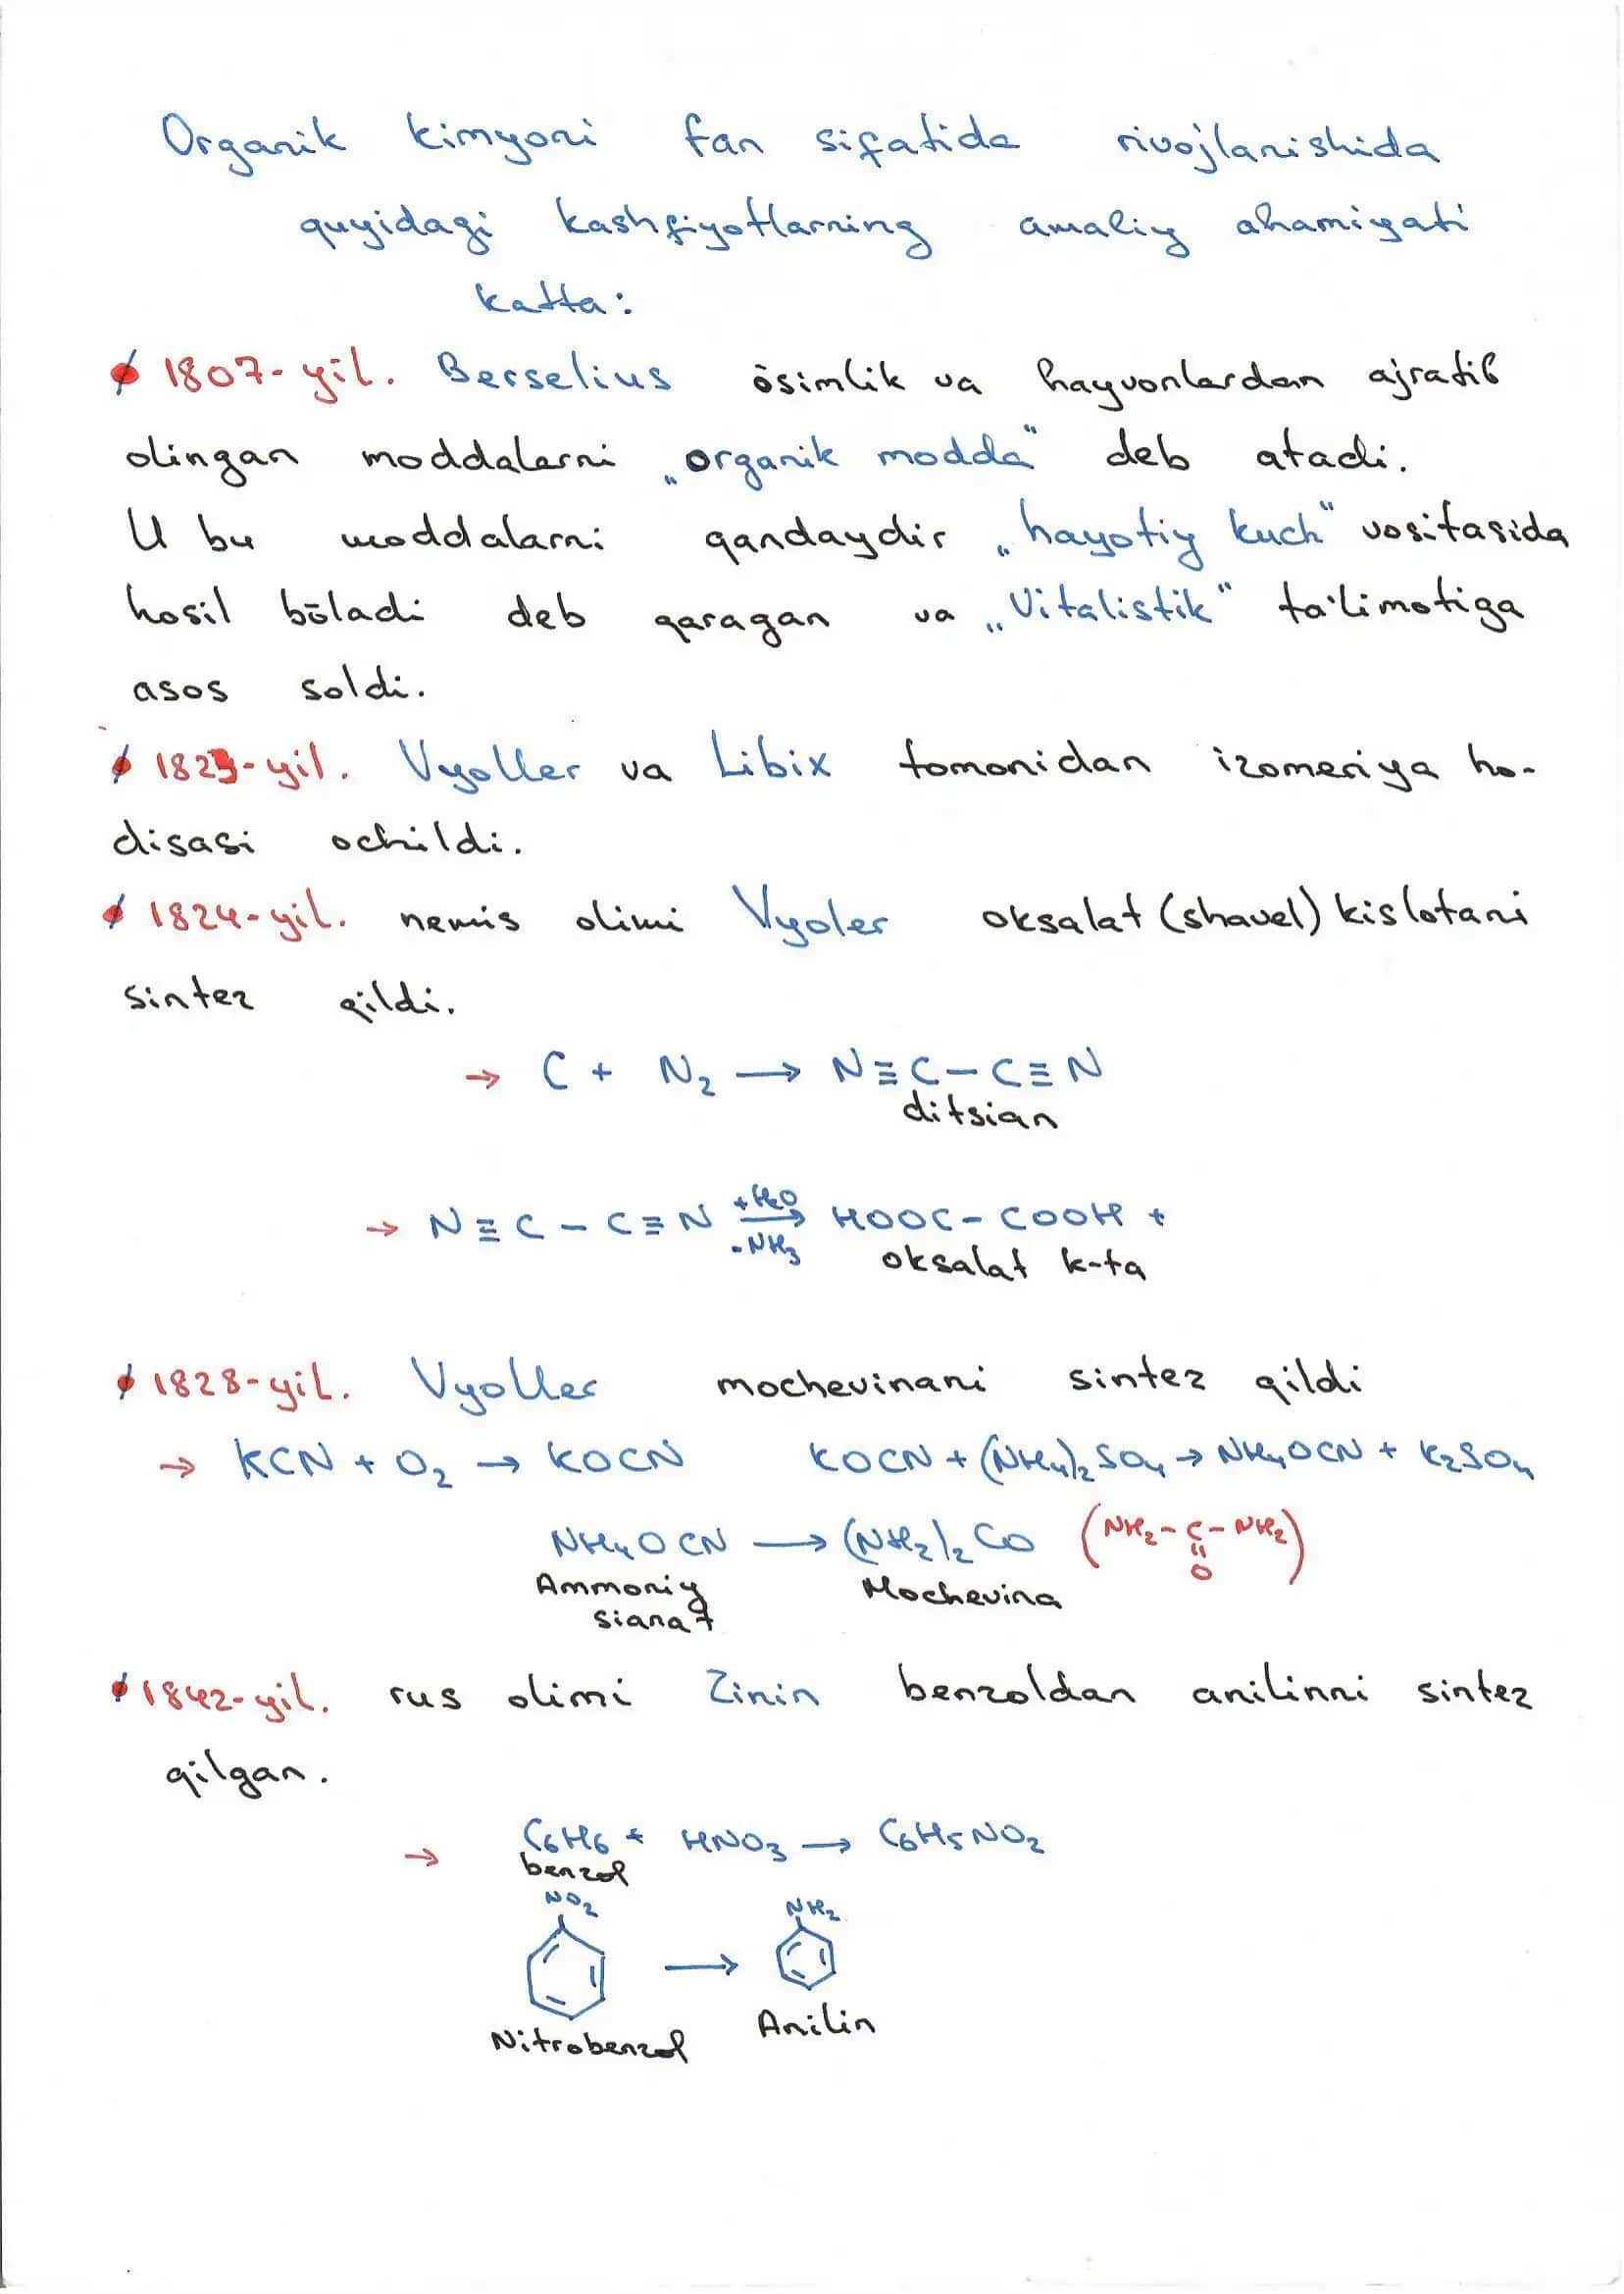 Organik kimyoni fan sifatida rivojlanishida
quyidagi kashfiyotlarning amaliy ahamiyati
katta:
1807-yil. Berselius ōsimlik va hayvonlardan ajratib
olingan moddalarni „organik modda“ deb atadi.
U bu moddalarni qandaydir „hayotiy kuch“ vositasida
hosil bōladi deb qaragan va „Vitalistik“ ta'limotiga
asos soldi.
1823-yil. Vyoller va Libix tomonidan izomeriya ho-
disasi ochildi.
1824-yil. nemis olimi Vyoler oksalat (shavel) kislotani
sintez qildi.
→ C + N₂ → N≡C–C≡N
ditsian
→ N≡C–C≡N +H₂O → -NH₃ HOOC–COOH +
oksalat k-ta
1828-yil. Vyoller mochevinani sintez qildi
→ KCN + O₂ → KOCN KOCN + (NH₄)₂SO₄ → NH₄OCN + K₂SO₄
NH₄OCN → (NH₂)₂CO (NH₂–C–NH₂)
O
Ammoniy Mochevina
sianat
1842-yil. rus olimi Zinin benzoldan anilinni sintez
qilgan.
→ C₆H₆ + HNO₃ → C₆H₅NO₂
benzol
NO₂ NH₂
→
Nitrobenzol Anilin